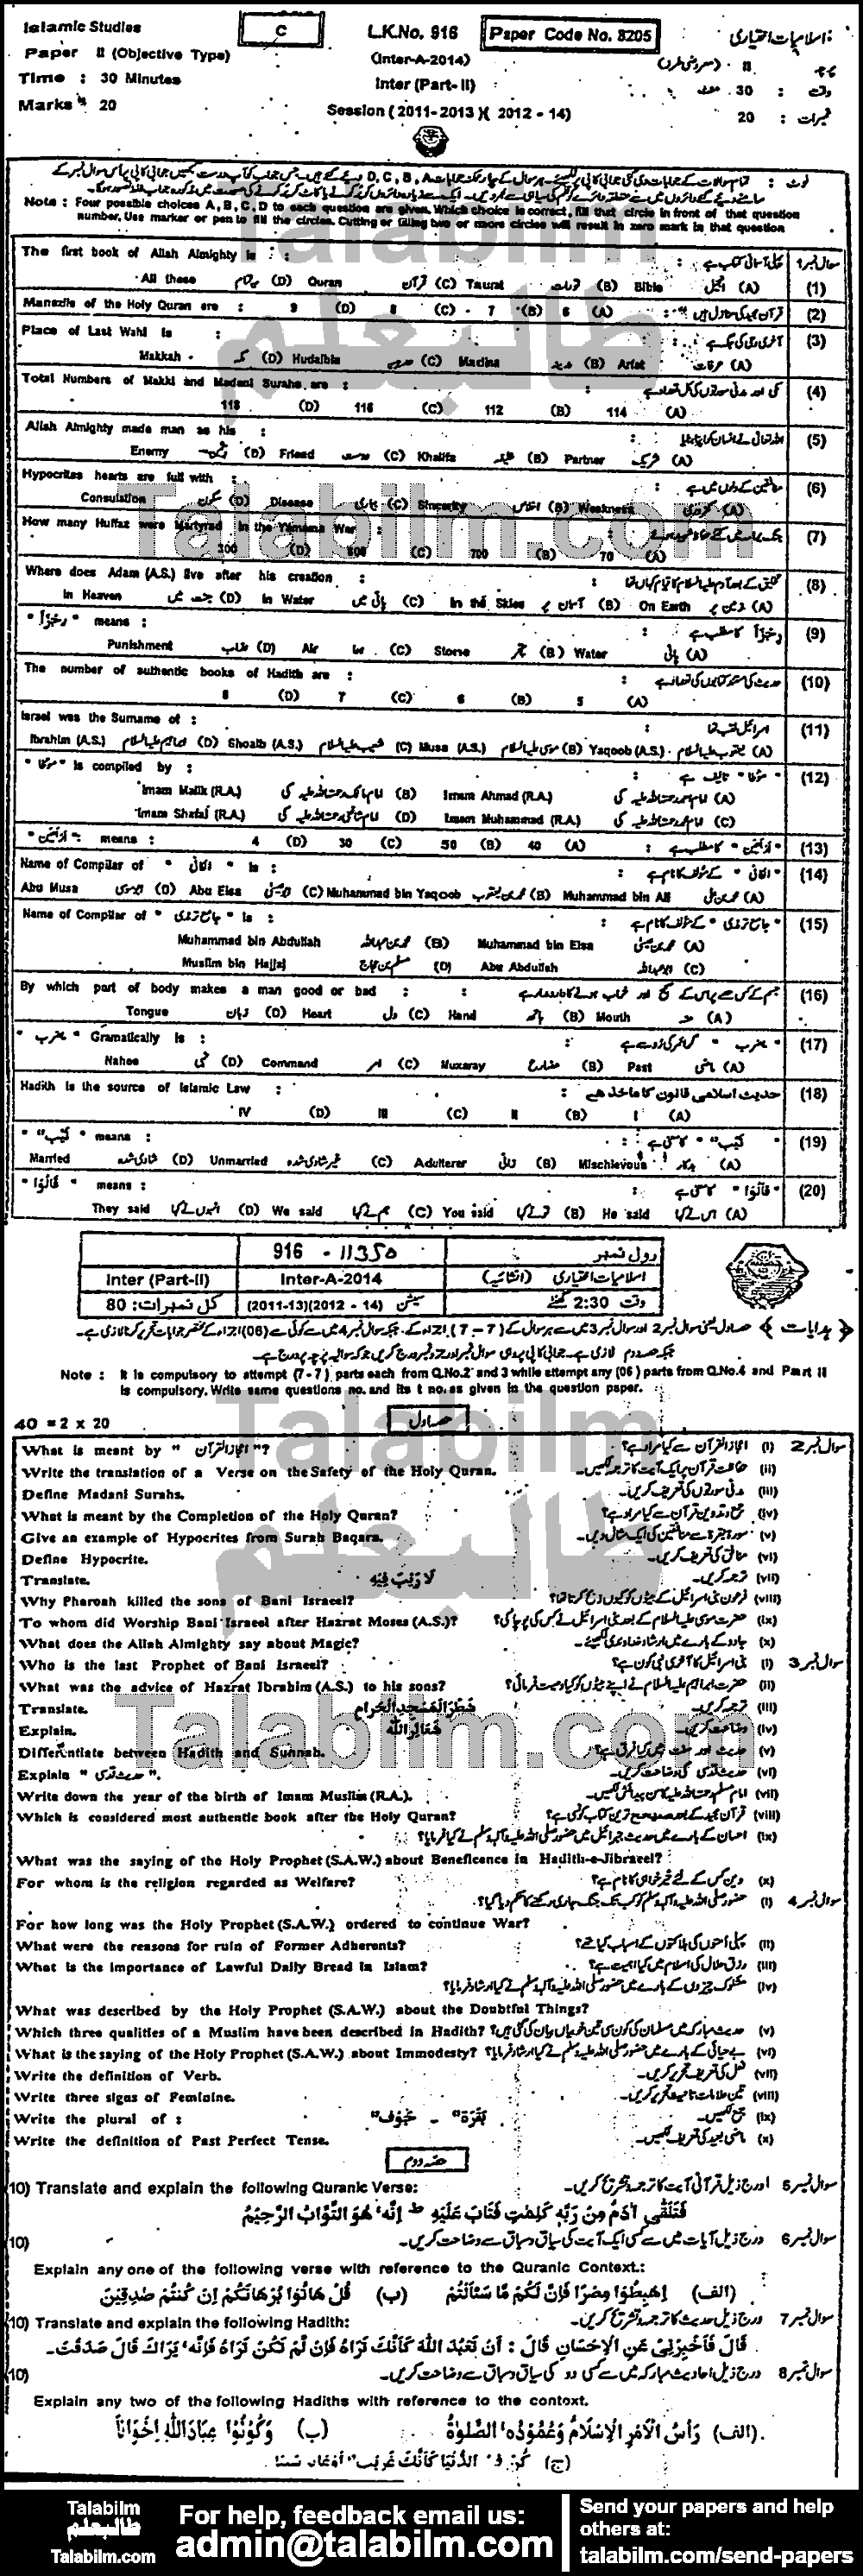 Islamic Studies
C
L.K.No. 916
Paper Code No. 8205
اسلامیات اختیاری :
Paper II (Objective Type)
(Inter-A-2014)
Time : 30 Minutes
Inter (Part- II)
وقت : 30
Marks : 20
Session (2011-2013)( 2012 - 14)
نمبرات : 20
Note : Four possible choices A, B, C, D to each question are given. Which choice is correct, fill that circle in front of that question
number. Use marker or pen to fill the circles. Cutting or filling two or more circles will result in zero mark in that question
The first book of Allah Almighty is :
سوال نمبر 1
All these (D) Quran قرآن (C) Taurat تورات (B) Bible انجیل (A) (1)
Manazils of the Holy Quran are : 9 (D) 8 (C) 7 (B) 6 (A) (2)
Place of Last Wahi is : (3)
Makkah مکہ (D) Hudaibia حدیبیہ (C) Madina مدینہ (B) Arfat عرفات (A)
Total Numbers of Makki and Madani Surahs are : (4)
118 (D) 116 (C) 112 (B) 114 (A)
Allah Almighty made man as his : (5)
Enemy دشمن (D) Friend دوست (C) Khalifa خلیفہ (B) Partner شریک (A)
Hypocrites hearts are full with : (6)
Consulation سکون (D) Disease بیماری (C) Sincerity اخلاص (B) Weakness کمزوری (A)
How many Huffaz were Martyrad in the Yamama War : (7)
300 (D) 600 (C) 700 (B) 70 (A)
Where does Adam (A.S.) live after his creation : (8)
In Heaven جنت میں (D) In Water پانی میں (C) In the Skies آسمان پر (B) On Earth زمین پر (A)
" رِجْزاً " means : (9)
Punishment عذاب (D) Air ہوا (C) Stone پتھر (B) Water پانی (A)
The number of authentic books of Hadith are : (10)
8 (D) 7 (C) 6 (B) 5 (A)
Israel was the Surname of : (11)
Ibrahim (A.S.) ابراہیم علیہ السلام (D) Shoaib (A.S.) شعیب علیہ السلام (C) Musa (A.S.) موسی علیہ السلام (B) Yaqoob (A.S.) یعقوب علیہ السلام (A)
" مؤطا " is compiled by : (12)
Imam Malik (R.A.) (B) Imam Ahmad (R.A.) (A)
Imam Shafai (R.A.) (D) Imam Muhammad (R.A.) (C)
" اربعین " means : 4 (D) 30 (C) 50 (B) 40 (A) (13)
Name of Compiler of " الکافی " is : (14)
Abu Musa ابوموسی (D) Abu Eisa ابوعیسی (C) Muhammad bin Yaqoob محمد بن یعقوب (B) Muhammad bin Ali محمد بن علی (A)
Name of Compiler of " جامع ترمذی " is : (15)
Muhammad bin Abdullah محمد بن عبداللہ (B) Muhammad bin Eisa محمد بن عیسی (A)
Muslim bin Hajjaj مسلم بن حجاج (D) Abu Abdullah ابوعبداللہ (C)
By which part of body makes a man good or bad : (16)
Tongue زبان (D) Heart دل (C) Hand ہاتھ (B) Mouth منہ (A)
" یضرب " Gramatically is : (17)
Nahee نہی (D) Command امر (C) Muzaray مضارع (B) Past ماضی (A)
Hadith is the source of Islamic Law : حدیث اسلامی قانون کا ماخذ ہے : (18)
IV (D) III (C) II (B) I (A)
" ثیب " means : (19)
Married شادی شدہ (D) Unmarried غیر شادی شدہ (C) Adulterer زانی (B) Mischievous بدکار (A)
" قَالُوْا " means : (20)
They said انہوں نے کہا (D) We said ہم نے کہا (C) You said تونے کہا (B) He said اس نے کہا (A)
916 - 11350
رول نمبر
Inter (Part-II)
Inter-A-2014
اسلامیات اختیاری (انشائیہ)
کل نمبرات: 80
سیشن (2011-13)(2012 - 14)
وقت 2:30 گھنٹے
Note : It is compulsory to attempt (7 - 7) parts each from Q.No.2 and 3 while attempt any (06) parts from Q.No.4 and Part II
is compulsory. Write same questions no. and its t no. as given in the question paper.
حصہ اول
40 = 2 x 20
What is meant by " اعجاز القرآن "? اعجاز القرآن سے کیا مراد ہے؟ (i) سوال نمبر 2
Write the translation of a Verse on the Safety of the Holy Quran. حفاظت قرآن پر ایک آیت کا ترجمہ لکھیں۔ (ii)
Define Madani Surahs. مدنی سورتوں کی تعریف کریں۔ (iii)
What is meant by the Completion of the Holy Quran? جمع و تدوین قرآن سے کیا مراد ہے؟ (iv)
Give an example of Hypocrites from Surah Baqara. سورۃ بقرۃ سے منافقین کی ایک مثال دیں۔ (v)
Define Hypocrite. منافق کی تعریف کریں۔ (vi)
Translate. لَا رَيْبَ فِيْهِ ترجمہ کریں۔ (vii)
Why Pharoah killed the sons of Bani Israeel? فرعون بنی اسرائیل کے بیٹوں کو کیوں ذبح کرتا تھا؟ (viii)
To whom did Worship Bani Israeel after Hazrat Moses (A.S.)? حضرت موسی علیہ السلام کے بعد بنی اسرائیل نے کس کی پوجا کی؟ (ix)
What does the Allah Almighty say about Magic? جادو کے بارے میں ارشاد خداوندی لکھیئے۔ (x)
Who is the last Prophet of Bani Israeel? بنی اسرائیل کا آخری نبی کون ہے؟ (i) سوال نمبر 3
What was the advice of Hazrat Ibrahim (A.S.) to his sons? حضرت ابراہیم علیہ السلام نے اپنے بیٹوں کو کیا وصیت فرمائی؟ (ii)
Translate. شَطْرَ الْمَسْجِدِ الْحَرَامِ ترجمہ کریں۔ (iii)
Explain. شَعَائِرِ اللّٰهِ وضاحت کریں۔ (iv)
Differentiate between Hadith and Sunnah. حدیث اور سنت میں کیا فرق ہے؟ (v)
Explain " حدیث قدسی ". حدیث قدسی کی وضاحت کریں۔ (vi)
Write down the year of the birth of Imam Muslim (R.A.). امام مسلم رحمۃ اللہ علیہ کا سن پیدائش لکھیں۔ (vii)
Which is considered most authentic book after the Holy Quran? قرآن مجید کے بعد صحیح ترین کتاب کونسی ہے؟ (viii)
احسان کے بارے میں حدیث جبرائیل میں حضور صلی اللہ علیہ وآلہ وسلم نے کیا فرمایا؟ (ix)
What was the saying of the Holy Prophet (S.A.W.) about Beneficence in Hadith-e-Jibraeel?
For whom is the religion regarded as Welfare? دین کس کے لئے خیرخواہی کا نام ہے؟ (x)
حضور صلی اللہ علیہ وآلہ وسلم کو کب تک جنگ جاری رکھنے کا حکم دیا گیا؟ (i) سوال نمبر 4
For how long was the Holy Prophet (S.A.W.) ordered to continue War?
What were the reasons for ruin of Former Adherents? پہلی امتوں کی ہلاکتوں کے اسباب کیا تھے؟ (ii)
What is the importance of Lawful Daily Bread in Islam? رزق حلال کی اسلام میں کیا اہمیت ہے؟ (iii)
مشکوک چیزوں کے بارے میں حضور صلی اللہ علیہ وآلہ وسلم نے کیا ارشاد فرمایا؟ (iv)
What was described by the Holy Prophet (S.A.W.) about the Doubtful Things?
Which three qualities of a Muslim have been described in Hadith? حدیث مبارکہ میں مسلمان کی کون سی تین خوبیاں بیان کی گئی ہیں؟ (v)
What is the saying of the Holy Prophet (S.A.W.) about Immodesty? بے حیائی کے بارے میں حضور صلی اللہ علیہ وآلہ وسلم نے کیا ارشاد فرمایا؟ (vi)
Write the definition of Verb. فعل کی تعریف تحریر کریں۔ (vii)
Write three signs of Feminine. تین علامات تانیث تحریر کریں۔ (viii)
Write the plural of : بَقَرَة" - خَوْف" جمع لکھیں۔ (ix)
Write the definition of Past Perfect Tense. ماضی بعید کی تعریف لکھیں۔ (x)
حصہ دوم
10) Translate and explain the following Quranic Verse: درج ذیل قرآنی آیت کا ترجمہ و تشریح کریں۔ سوال نمبر 5
فَتَلَقّٰى اٰدَمُ مِنْ رَّبِّهٖ كَلِمٰتٍ فَتَابَ عَلَيْهِ ط اِنَّهٗ هُوَ التَّوَّابُ الرَّحِيْمُ
10) درج ذیل آیات میں سے کسی ایک آیت کی سیاق و سباق سے وضاحت کریں۔ سوال نمبر 6
Explain any one of the following verse with reference to the Quranic Context.:
(الف) اِهْبِطُوْا مِصْرًا فَاِنَّ لَكُمْ مَّا سَاَلْتُمْ (ب) قُلْ هَاتُوْا بُرْهَانَكُمْ اِنْ كُنْتُمْ صٰدِقِيْنَ
10) Translate and explain the following Hadith: درج ذیل حدیث کا ترجمہ و تشریح کریں۔ سوال نمبر 7
قَالَ فَاَخْبِرْنِيْ عَنِ الْاِحْسَانِ قَالَ : اَنْ تَعْبُدَ اللّٰهَ كَاَنَّكَ تَرَاهُ فَاِنْ لَّمْ تَكُنْ تَرَاهُ فَاِنَّهٗ يَرَاكَ قَالَ صَدَقْتَ۔
10) درج ذیل احادیث مبارکہ میں سے کسی دو کی سیاق و سباق سے وضاحت کریں۔ سوال نمبر 8
Explain any two of the following Hadiths with reference to the context.
(الف) رَأْسُ الْاَمْرِ الْاِسْلَامُ وَعُمُوْدُهُ الصَّلٰوةُ (ب) وَكُوْنُوْا عِبَادَ اللّٰهِ اِخْوَانًا
Talabilm
طالبعلم
Talabilm.com
For help, feedback email us:
admin@talabilm.com
Send your papers and help
others at:
talabilm.com/send-papers